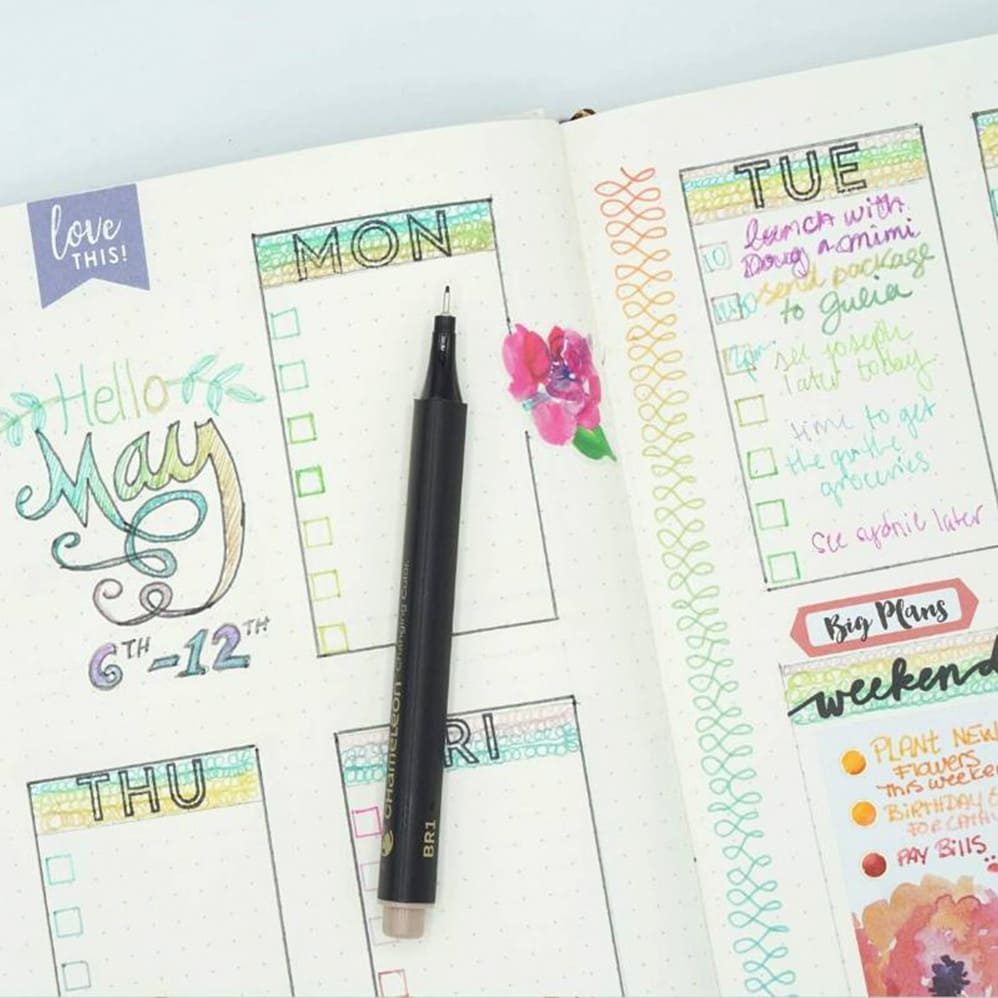 love
THIS!
Hello
May
6TH-12TH
MON
THU
RI
CHAMELEON Changing Color
BR1
TUE
10
lunch with
Doug n mimi
send package
to Gulia
2pm
see joseph
later today
time to get
the
groceries
see sydnie later
Big Plans
weekend
PLANT NEW
Flowers
This weeken
BIRTHDAY
FOR CATH
PAY BILLS...